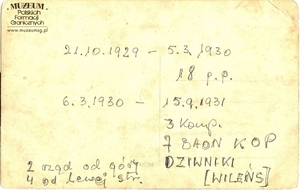 MUZEUM
Polskich
Formacji
Granicznych
www.muzeumsg.pl
21.10.1929 - 5.3.1930
18 p.p.
6.3.1930 - 15.9.1931
3 Komp.
7 BAON KOP
DZIWNIKI
[WILEŃS]
2 rząd od góry
4 od lewej str.